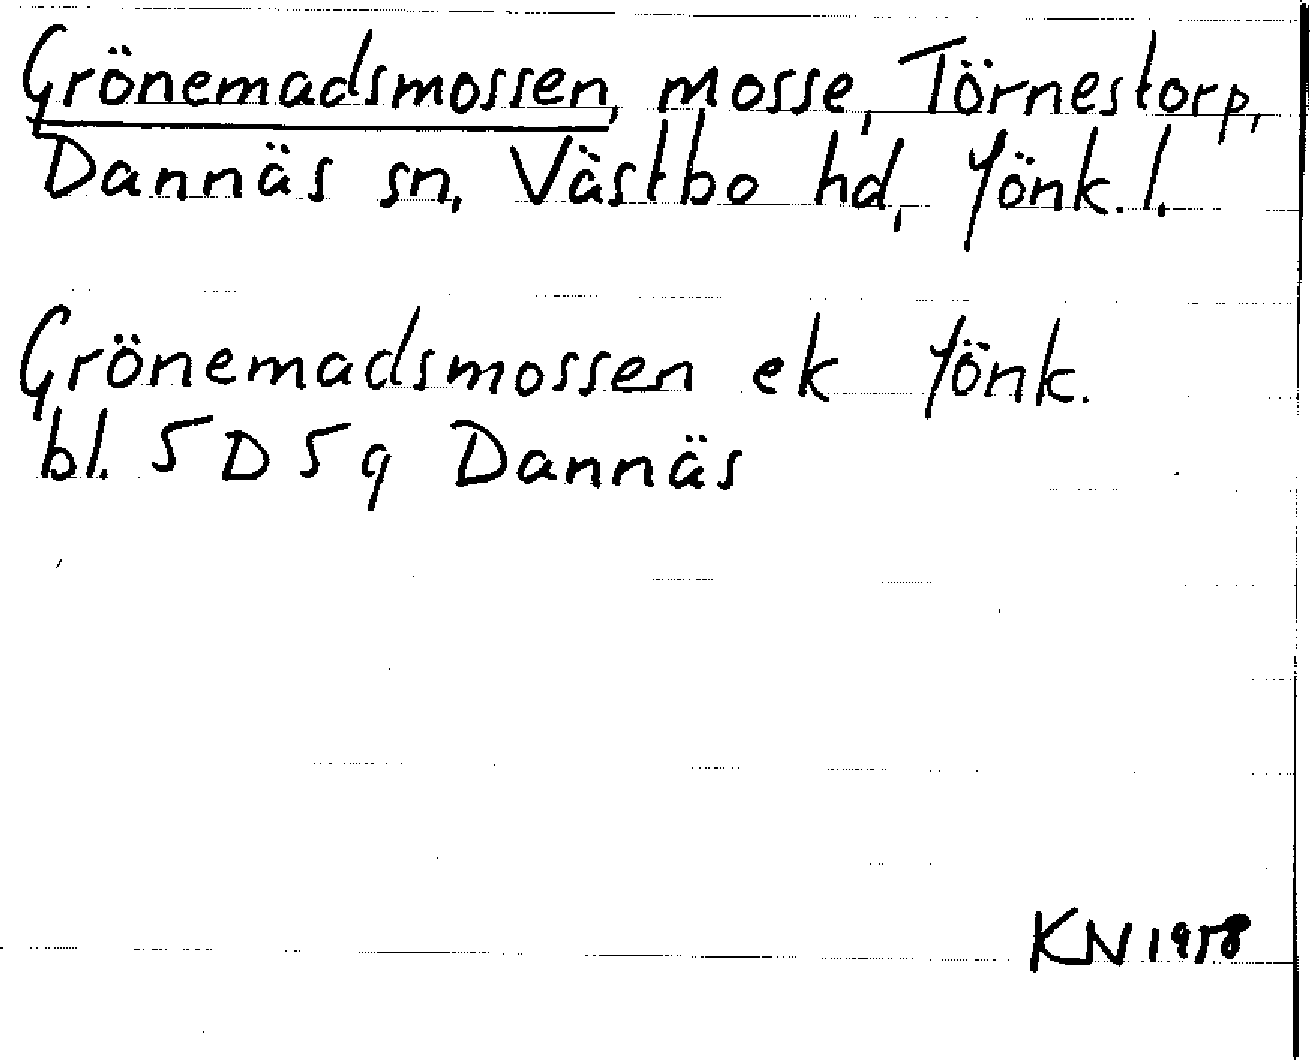 Grönemadsmossen, mosse, Törnestorp,
Dannäs sn, Västbo hd, Jönk. l.
Grönemadsmossen ek Jönk.
bl. 5 D 5 g Dannäs
KN 1958